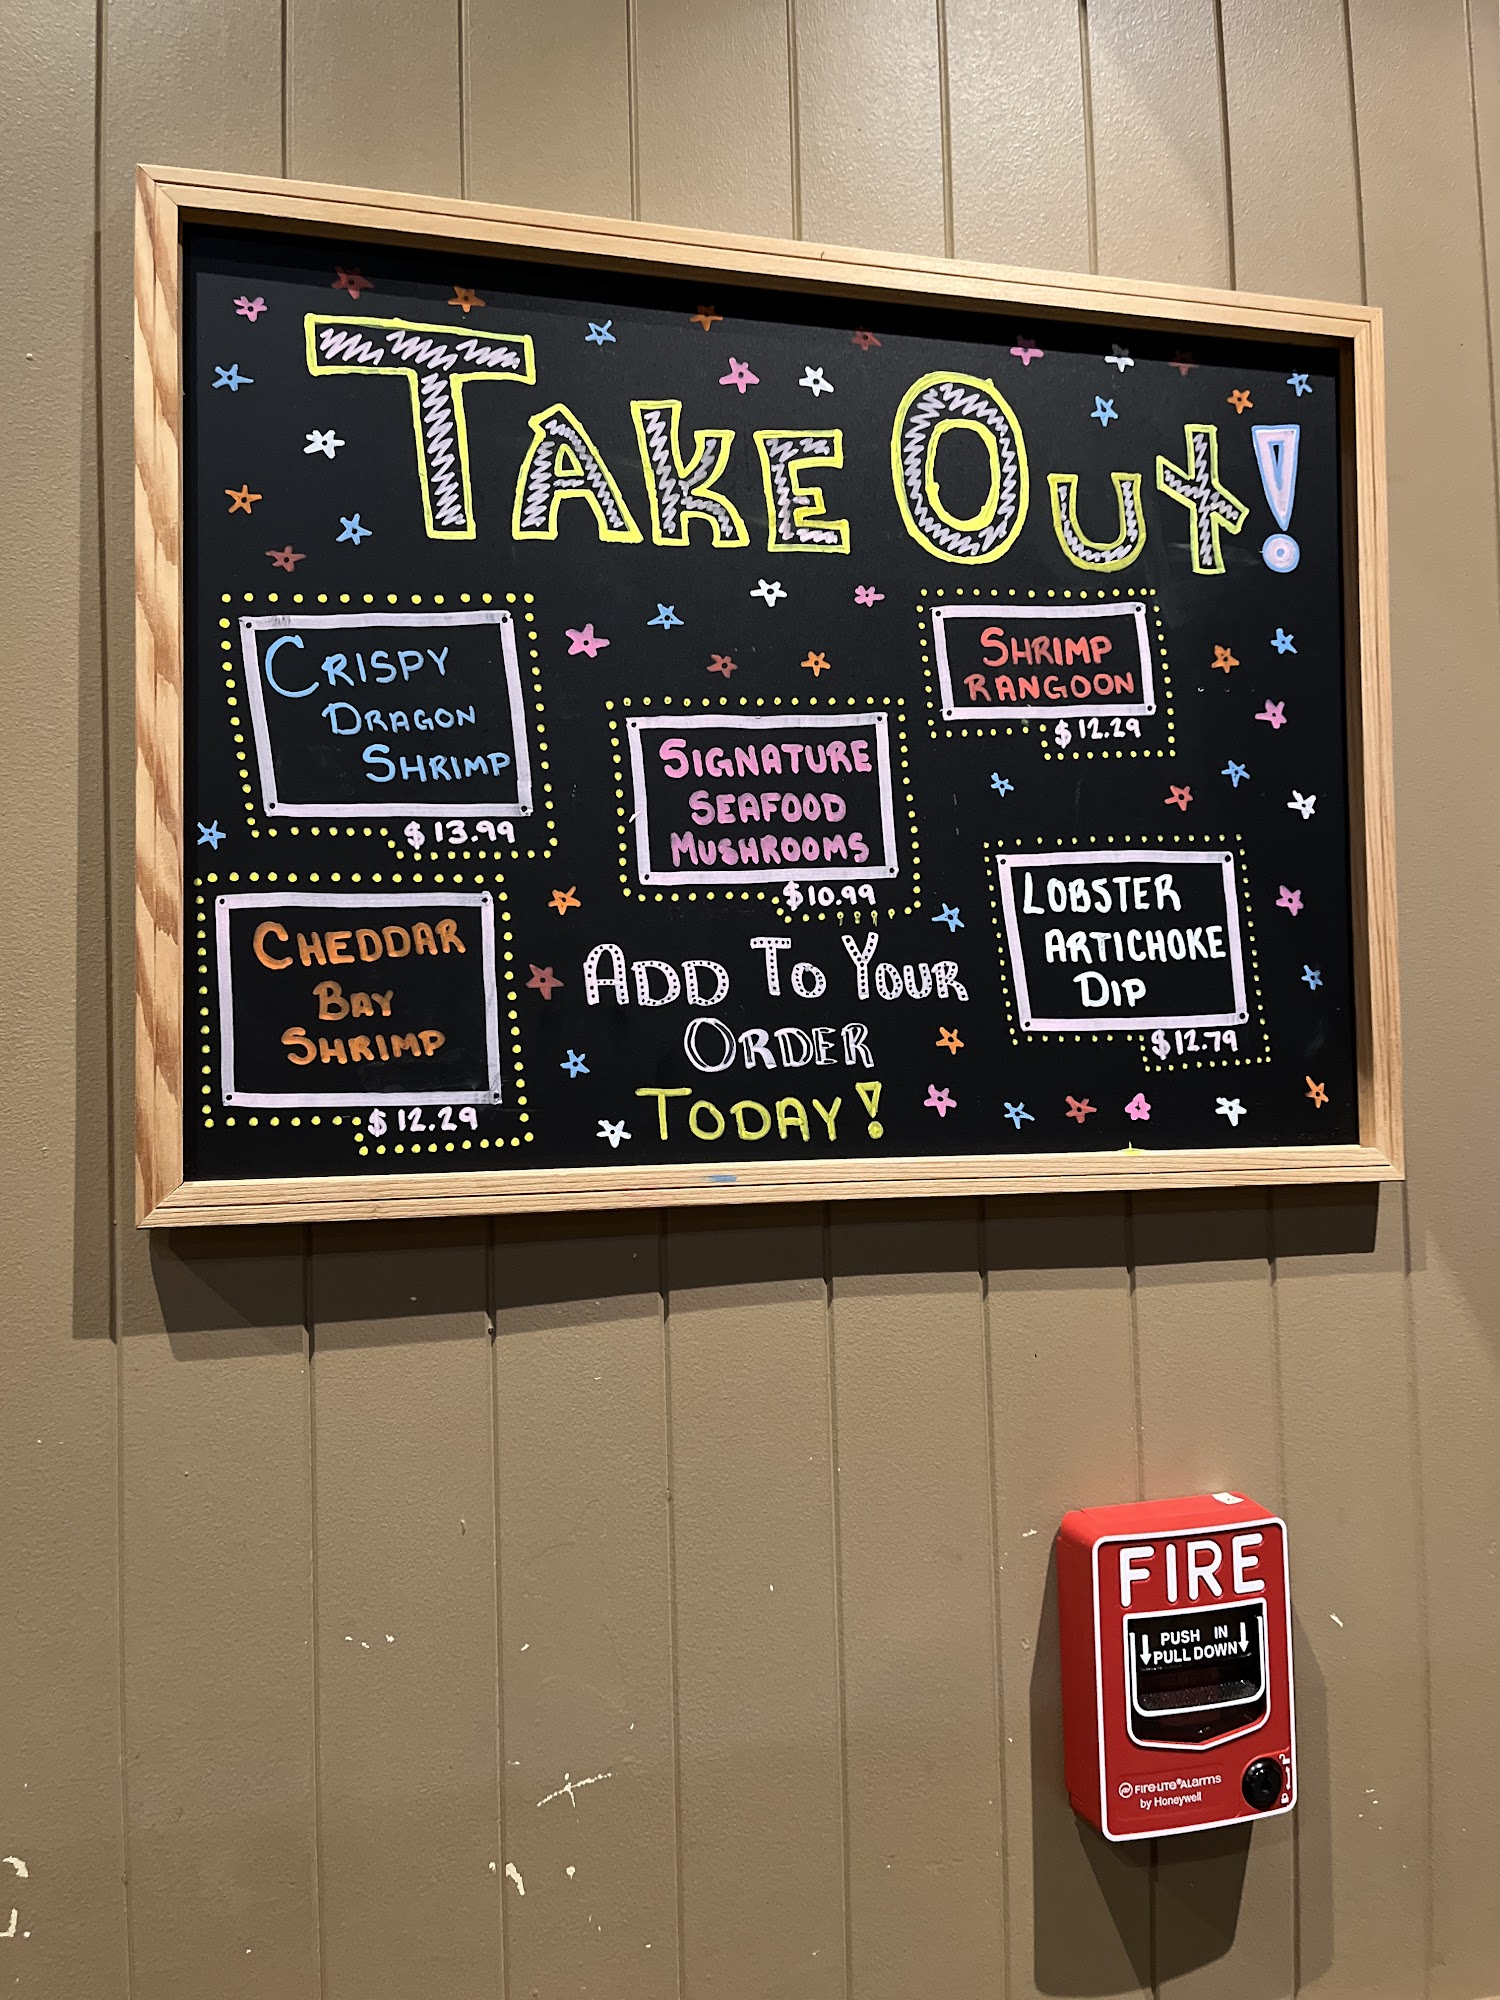 TAKE OUT!
CRISPY
DRAGON
SHRIMP
$13.99
SHRIMP
RANGOON
$12.29
SIGNATURE
SEAFOOD
MUSHROOMS
$10.99
CHEDDAR
BAY
SHRIMP
$12.29
LOBSTER
ARTICHOKE
DIP
$12.79
ADD TO YOUR
ORDER
TODAY!
FIRE
PUSH IN
PULL DOWN
FIRE-LITE®ALARMS
by Honeywell